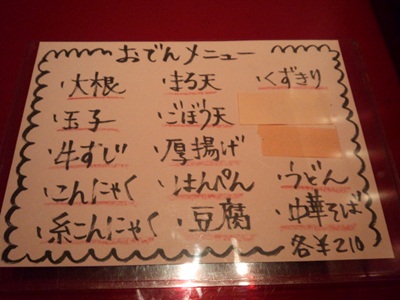 おでんメニュー
・大根 ・まる天 ・くずきり
・玉子 ・ごぼう天
・牛すじ ・厚揚げ
・こんにゃく ・はんぺん ・うどん
・糸こんにゃく ・豆腐 ・中華そば
各¥210